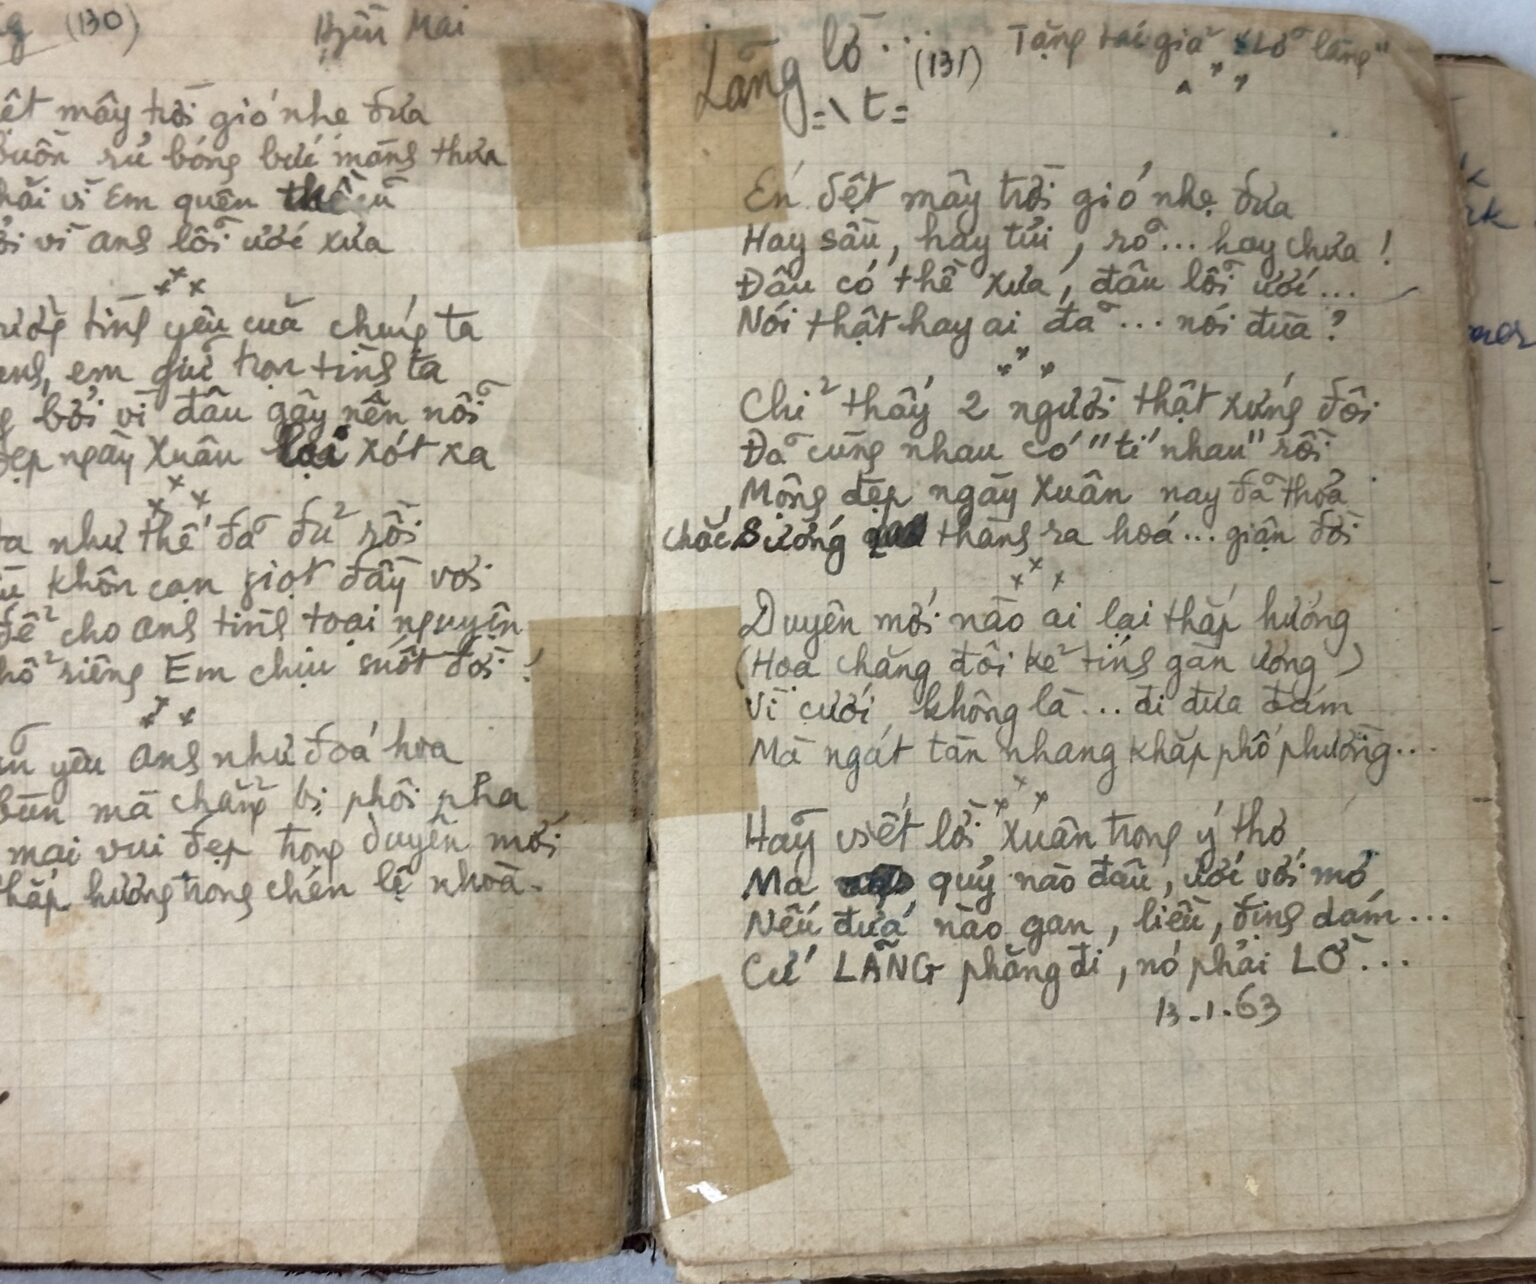 (130) Hiền Mai
ết mây trời gió nhẹ đưa
buồn rủ bóng bưới màng thưa
hải vì Em quên thề cũ
ởi vì anh lỗi ước xưa
x x x
tình yêu của chúng ta
anh, em giữ trọn tình ta
bởi vì đâu gây nên nỗi
đẹp ngày Xuân lại xót xa
x x x
ta như thế đã đủ rồi
khôn cạn giọt đầy vơi
để cho anh tình toại nguyện
hổ riêng Em chịu suốt đời !
x x x
yêu anh như đoá hoa
bùn mà chẳng bị phôi pha
mai vui đẹp trong duyên mới
thắp hương trong chén lệ nhoà.
Lẳng lơ... (131) Tặng tác giả "Lỡ làng"
= \ t =
Én dệt mây trời gió nhẹ đưa
Hay sầu, hay tủi, rõ... hay chưa !
Đâu có thề xưa, đâu lỗi ước...
Nói thật hay ai đã... nói đùa ?
x x x
Chỉ thấy 2 người thật xứng đôi
Đã cùng nhau có "tí nhau" rồi
Mộng đẹp ngày Xuân nay đã thỏa
chắc Sướng thằng ra hoá... giận đời
x x x
Duyên mới nào ai lại thắp hương
(Hoạ chăng đôi kẻ tính gàn ương)
Vì cưới không là... đi đưa đám
Mà ngát tàn nhang khắp phố phường...
x x x
Hãy viết lời Xuân trong ý thơ
Ma quỷ nào đâu, ước với mơ
Nếu đứa nào gan, liều, định dám...
Cứ LẲNG phăng đi, nó phải LƠ...
13.1.63